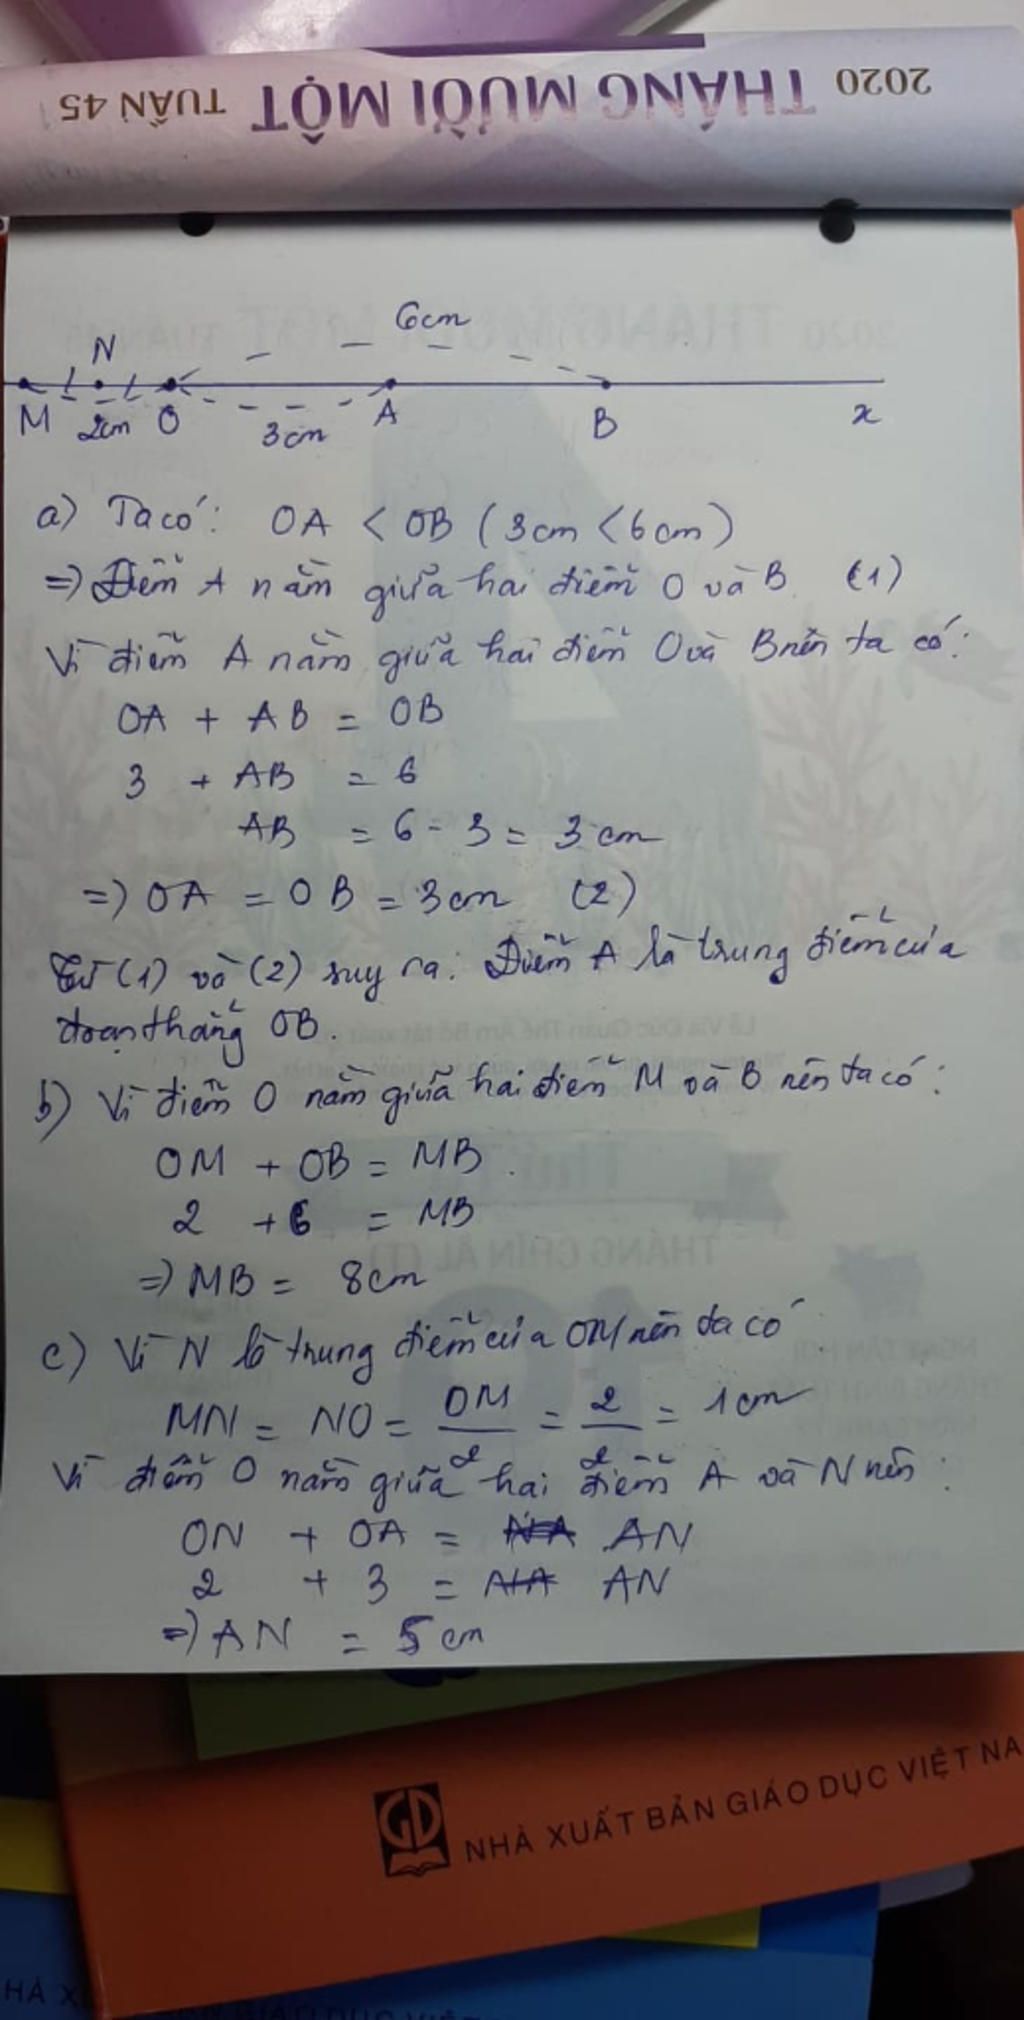 2020 THÁNG MƯỜI MỘT TUẦN 45
6cm
N
M 2cm O 3cm A B x
a) Ta có: OA < OB (3cm < 6cm)
=) Điểm A nằm giữa hai điểm O và B (1)
Vì điểm A nằm giữa hai điểm O và B nên ta có:
OA + AB = OB
3 + AB = 6
AB = 6 - 3 = 3 cm
=) OA = OB = 3cm (2)
Từ (1) và (2) suy ra: Điểm A là trung điểm của
đoạn thẳng OB.
b) Vì điểm O nằm giữa hai điểm M và B nên ta có:
OM + OB = MB.
2 + 6 = MB
=) MB = 8cm
c) Vì N là trung điểm của OM nên ta có
MN = NO = OM/2 = 2/2 = 1cm
Vì điểm O nằm giữa hai điểm A và N nên:
ON + OA = NA AN
2 + 3 = NA AN
=) AN = 5 cm
GD
NHÀ XUẤT BẢN GIÁO DỤC VIỆT NA